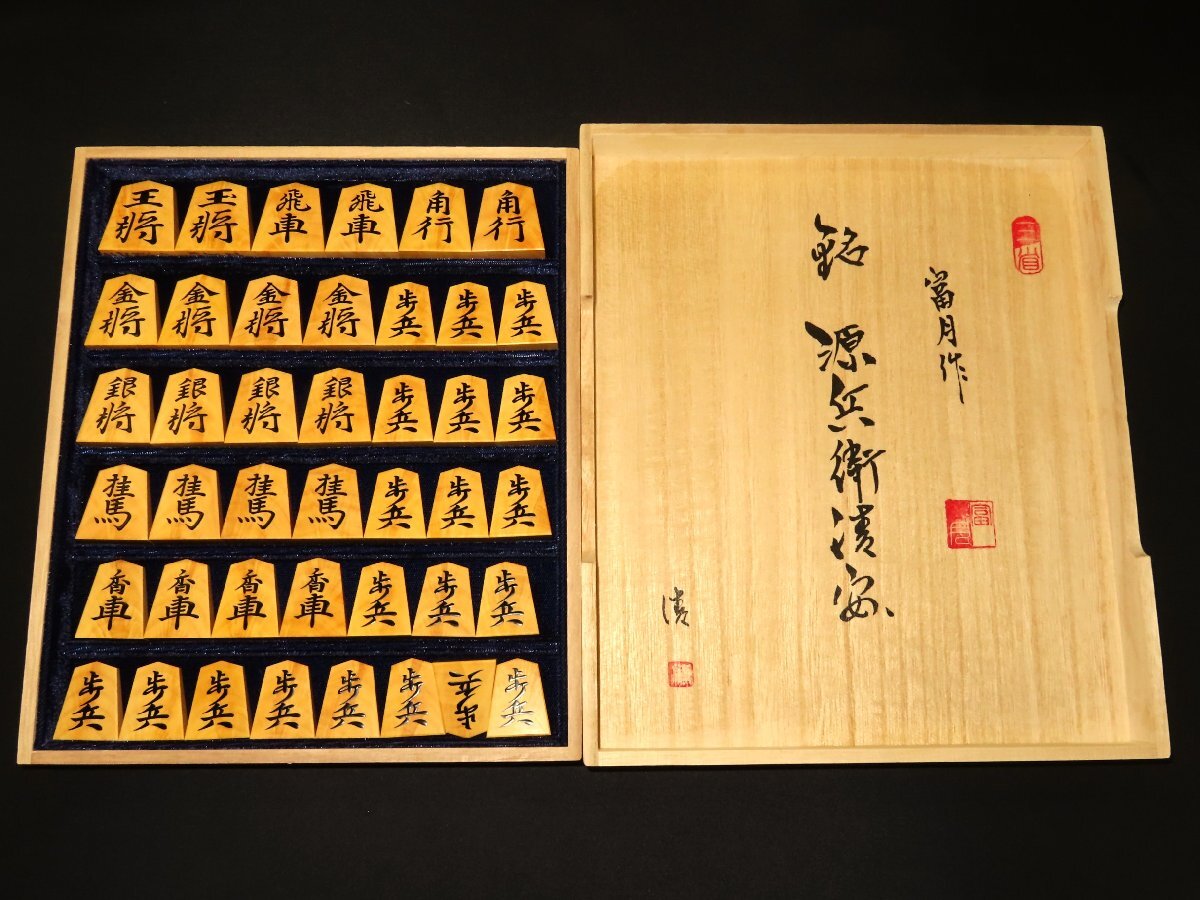 王将 玉将 飛車 飛車 角行 角行
金将 金将 金将 金将 歩兵 歩兵 歩兵
銀将 銀将 銀将 銀将 歩兵 歩兵 歩兵
桂馬 桂馬 桂馬 桂馬 歩兵 歩兵 歩兵
香車 香車 香車 香車 歩兵 歩兵 歩兵
歩兵 歩兵 歩兵 歩兵 歩兵 歩兵 歩兵 歩兵
富月作
銘 源兵衛清安
清